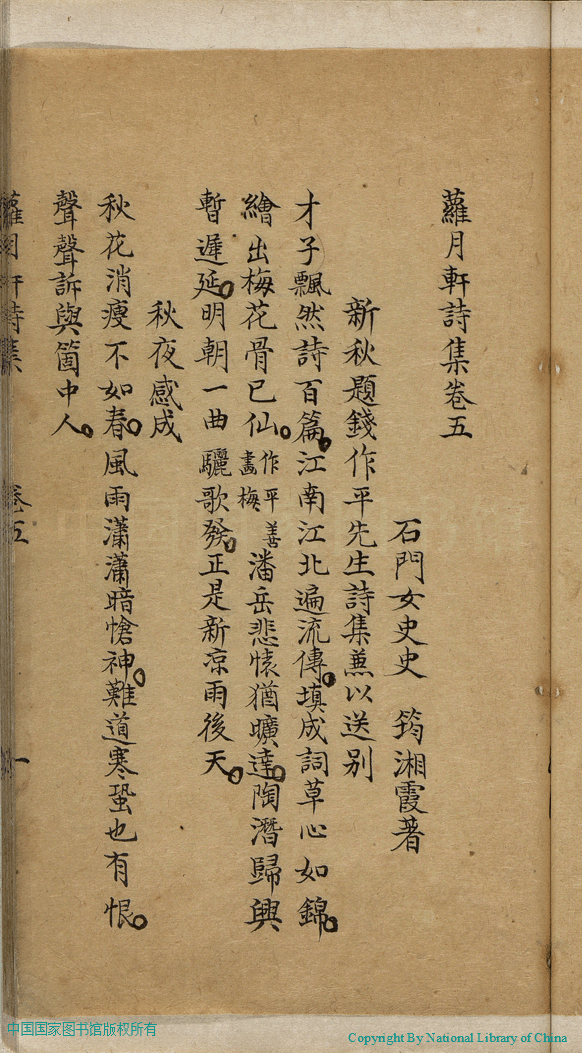 蘿月軒詩集卷五
石門女史史 筠湘霞著
新秋題錢作平先生詩集蒹以送別
才子飄然詩百篇江南江北遍流傳填成詞草心如錦
繪出梅花骨已仙作平善畫梅潘岳悲懐猶曠達陶潛歸興
暫遲延明朝一曲驪歌發正是新凉雨後天
秋夜感成
秋花消瘦不如春風雨瀟瀟暗愴神難道寒蛩也有恨
聲聲訴與箇中人
蘿月軒詩集 卷五 一
中国国家图书馆版权所有
Copyright By National Library of China